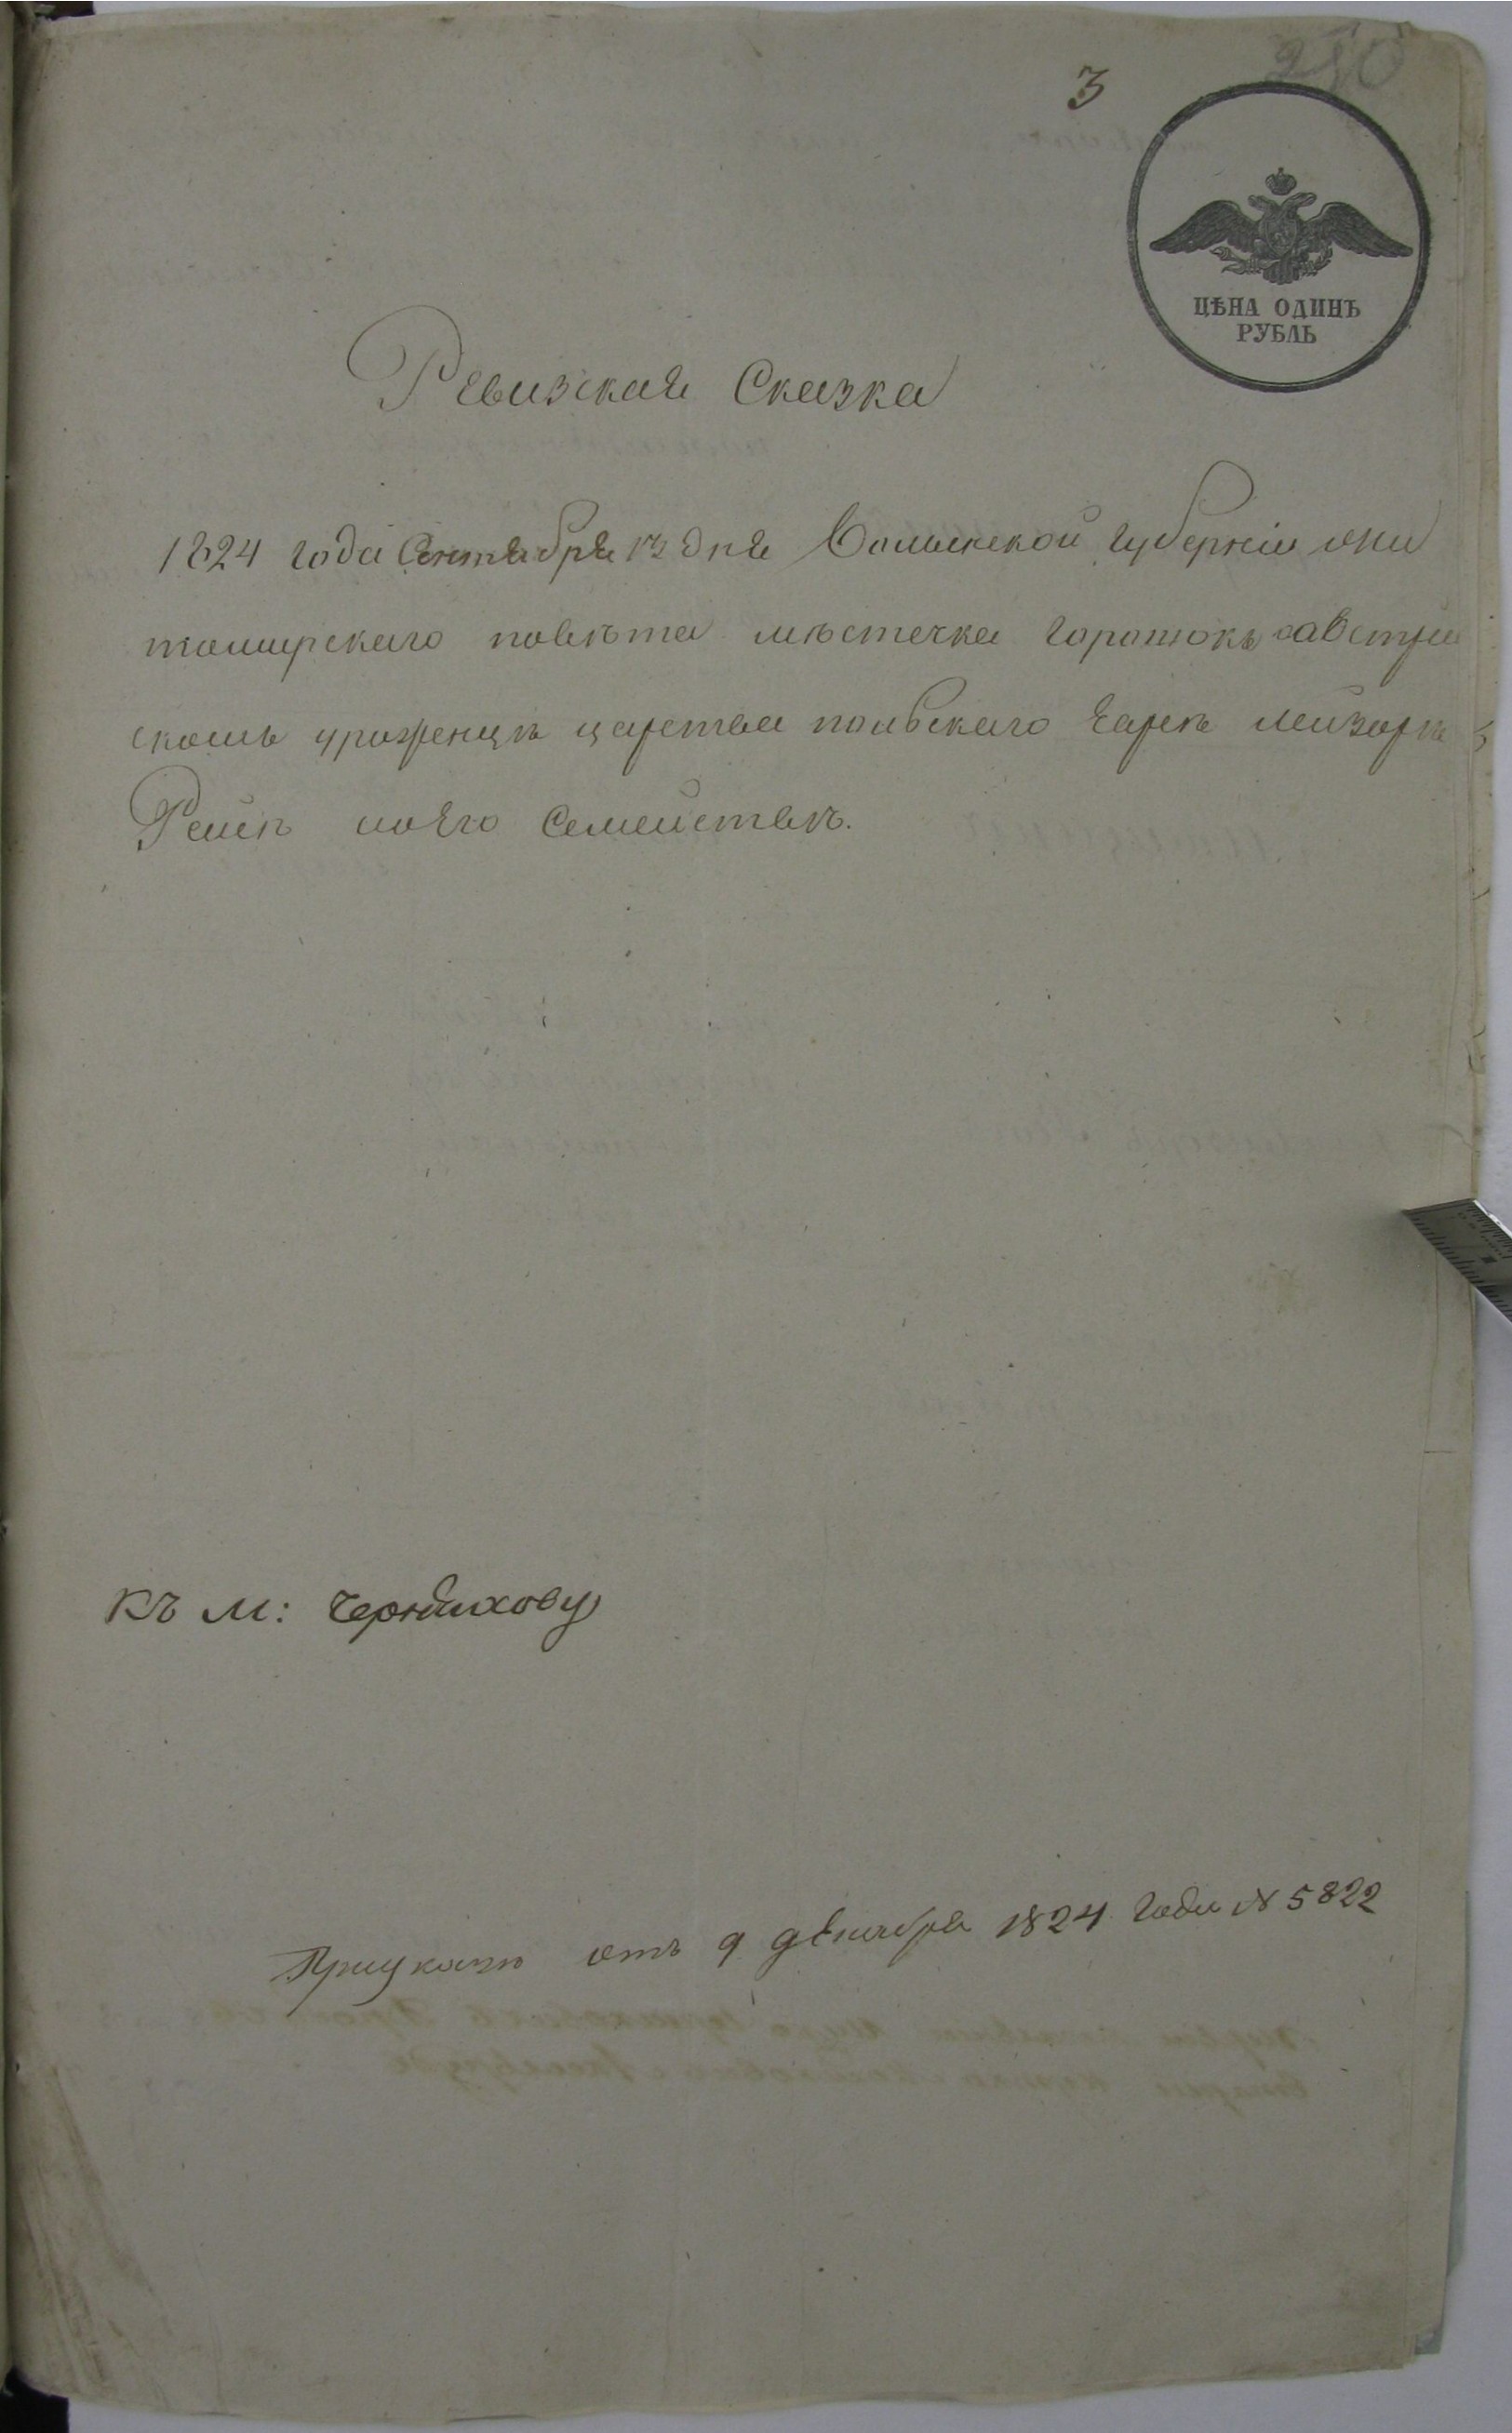 3
ЦѢНА ОДИНЪ
РУБЛЬ
Ревизская Сказка
1824 года Сентября 12 дня Волынской губерніи жи
томирскаго повѣта мѣстечка Горошокъ австрій
скомъ уроженцѣ царства польскаго Лейзорѣ
семействѣ.
Къ м: Черняхову
отъ 9 декабря 1824 года № 5822